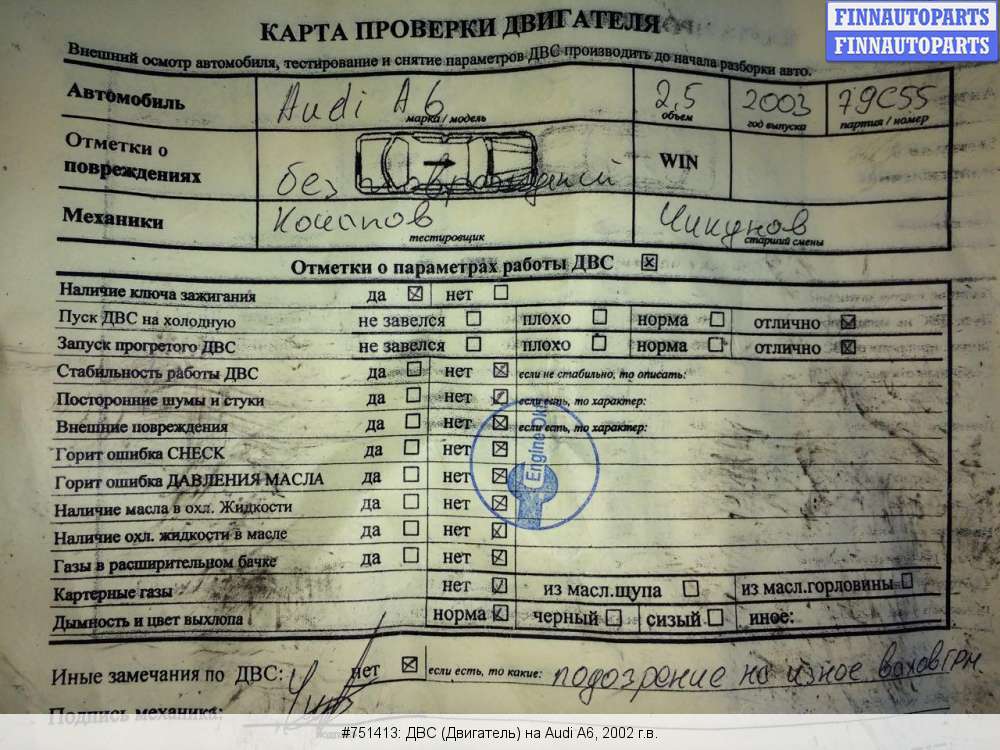 FINNAUTOPARTS
FINNAUTOPARTS
КАРТА ПРОВЕРКИ ДВИГАТЕЛЯ
Внешний осмотр автомобиля, тестирование и снятие параметров ДВС производить до начала разборки авто.
Автомобиль Audi A6 2,5 2003 79C55
марка / модель объем год выпуска партия / номер
Отметки о
повреждениях без повреждений WIN
Механики Чикунов
тестировщик старший смены
Отметки о параметрах работы ДВС
Наличие ключа зажигания да нет
Пуск ДВС на холодную не завелся плохо норма отлично
Запуск прогретого ДВС не завелся плохо норма отлично
Стабильность работы ДВС да нет если не стабильно, то описать:
Посторонние шумы и стуки да нет если есть, то характер:
Внешние повреждения да нет если есть, то характер:
Горит ошибка CHECK да нет
Горит ошибка ДАВЛЕНИЯ МАСЛА да нет
Наличие масла в охл. Жидкости да нет
Наличие охл. жидкости в масле да нет
Газы в расширительном бачке да нет
Картерные газы нет из масл.щупа из масл.горловины
Дымность и цвет выхлопа норма черный сизый иное:
Engine Ok
Иные замечания по ДВС: нет если есть, то какие: подозрение на износ валов ГРМ
Подпись механика:
#751413: ДВС (Двигатель) на Audi A6, 2002 г.в.